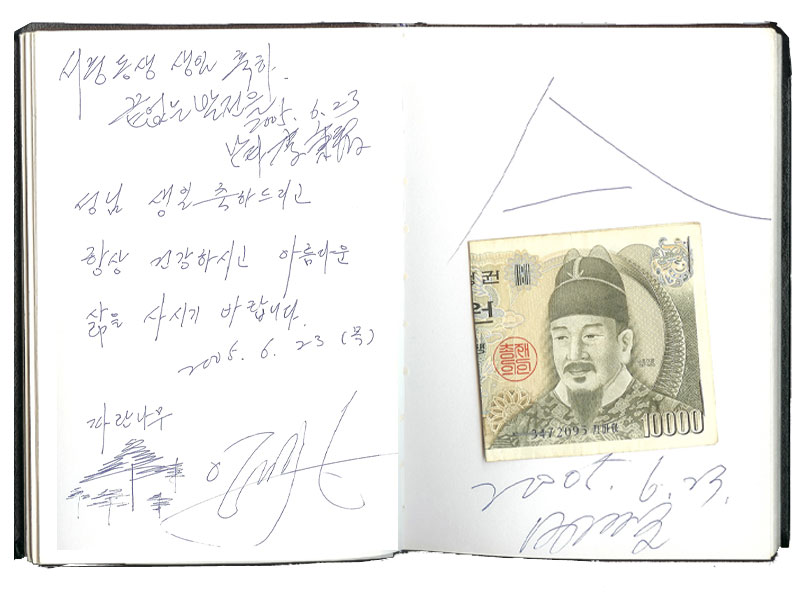 동생 생일 축하.
끝없는 발전을
2005. 6. 23
성님 생일 축하드리고
항상 건강하시고 아름다운
삶을 사시기 바랍니다.
2005. 6. 23 (목)
파란나무
권
원
행
3472095
10000
2005. 6. 23.